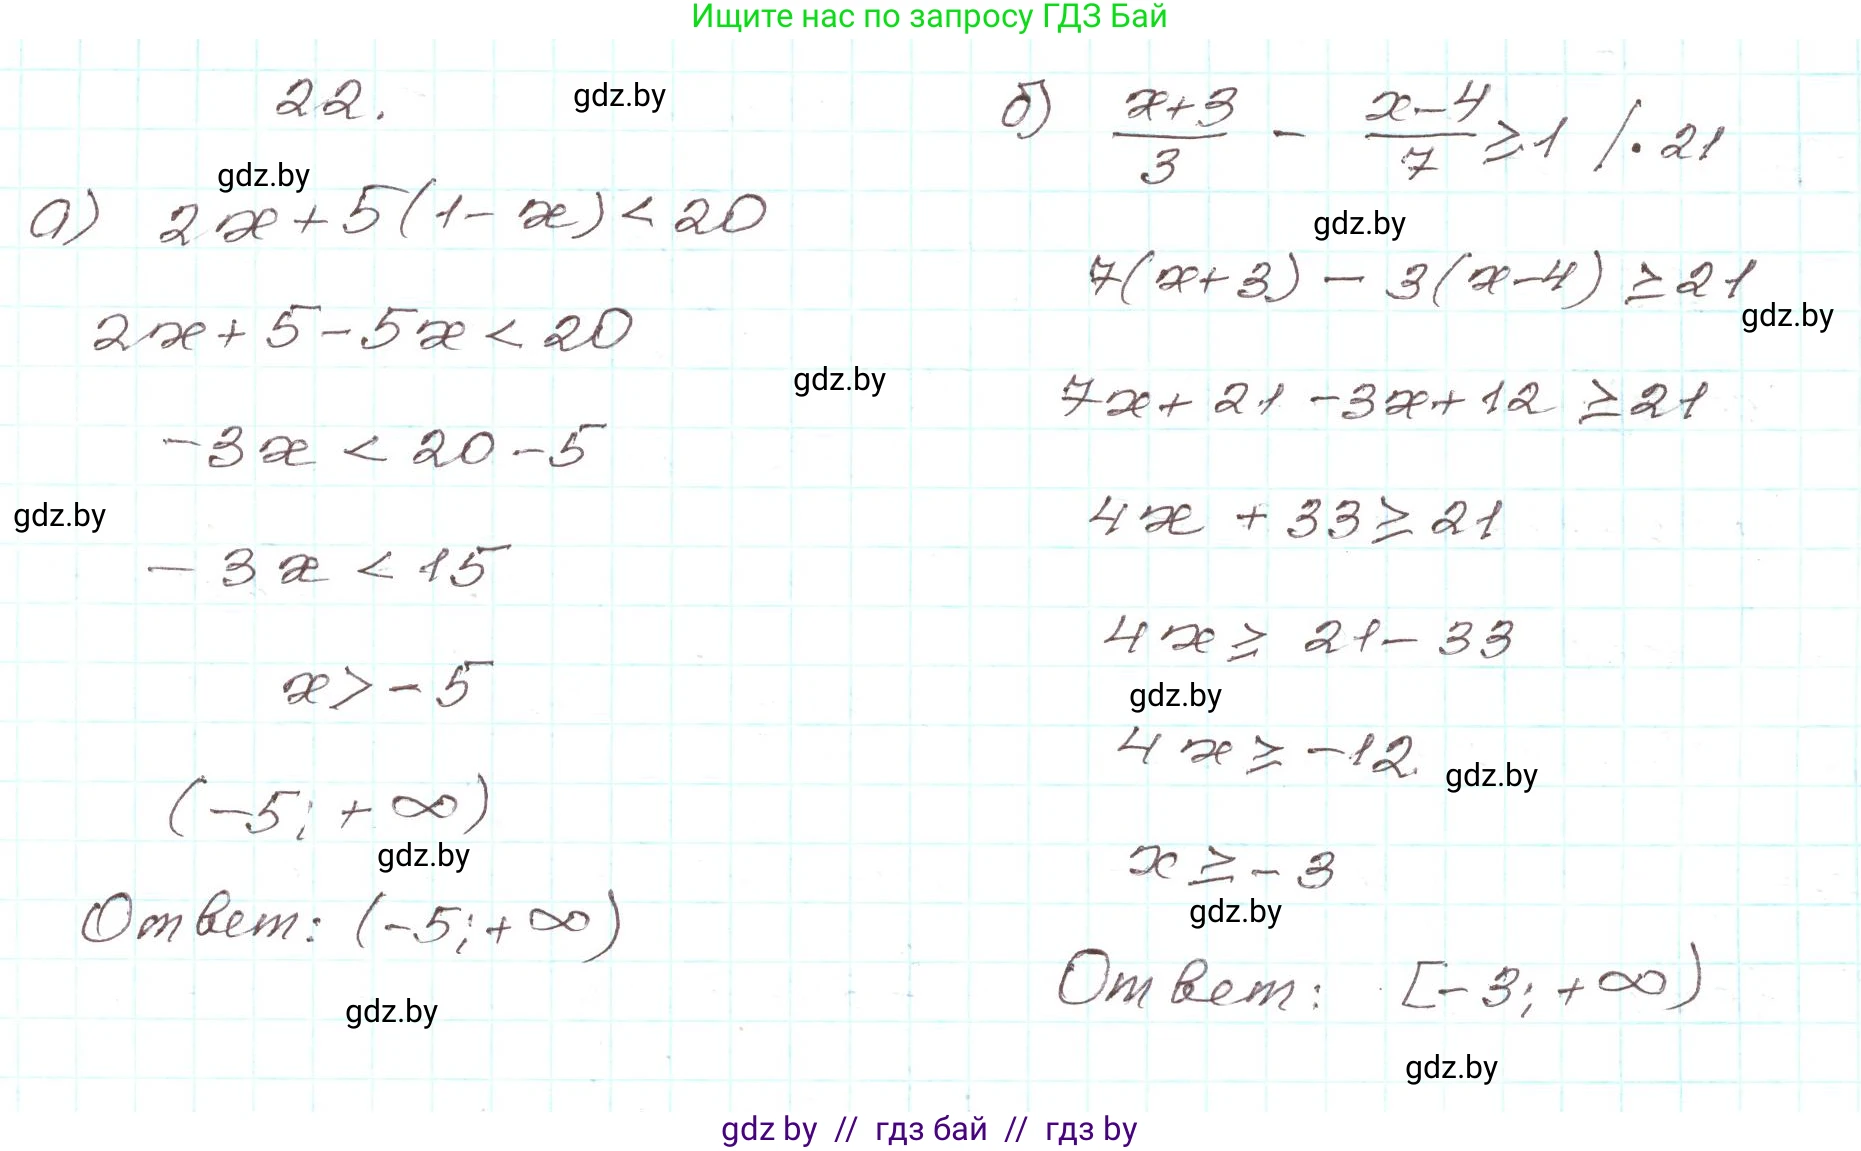 Ищите нас по запросу ГДЗ Бай
22.
gdz.by
gdz.by
а) 2x + 5(1 - x) < 20
2x + 5 - 5x < 20
gdz.by
-3x < 20 - 5
gdz.by
- 3x < 15
x > - 5
(-5; + ∞)
gdz.by
Ответ: (-5; + ∞)
gdz.by
б) (x+3)/3 - (x-4)/7 ≥ 1 / · 21
gdz.by
7(x+3) - 3(x-4) ≥ 21
gdz.by
7x + 21 - 3x + 12 ≥ 21
4x + 33 ≥ 21
4x ≥ 21 - 33
gdz.by
4x ≥ -12
gdz.by
x ≥ - 3
gdz.by
Ответ: [-3; +∞)
gdz.by
gdz by // гдз бай // гдз by